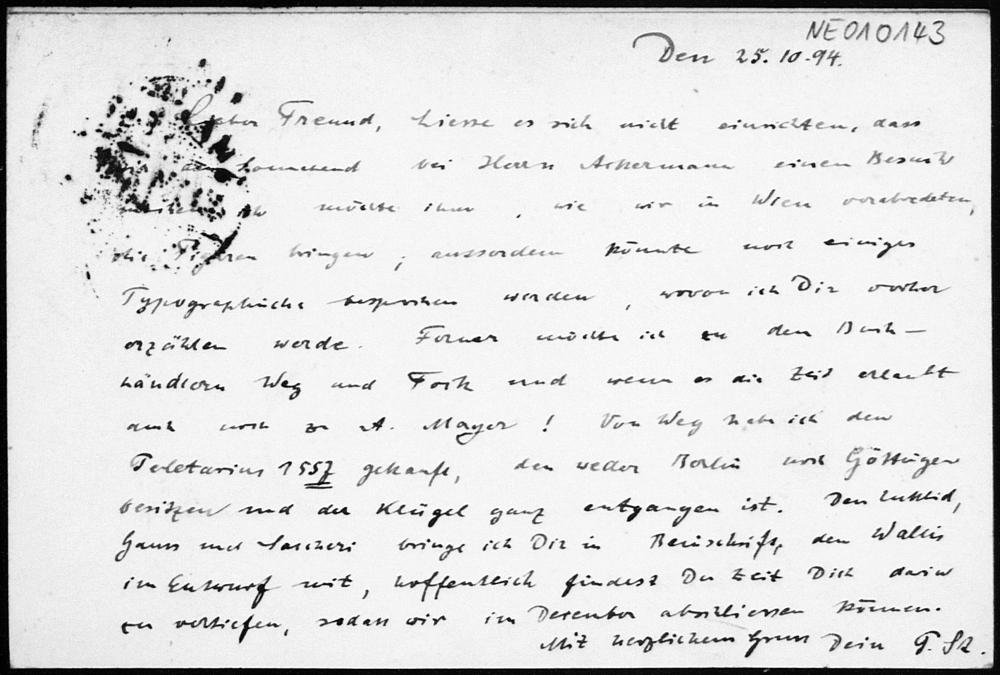 NE010143
Den 25.10.94.
Lieber Freund, Liesse es sich nicht einrichten, dass
Sonnabend bei Herrn Ackermann einen Besuch
möchte ihm, wie wir in Wien verabredeten,
die Figuren bringen; ausserdem könnte noch einiges
Typographische besprochen werden, wovon ich Dir vorher
erzählen werde. Ferner möchte ich zu den Buch-
händlern Weg und Fock und wenn es die Zeit erlaubt
auch noch zu A. Mayer! Von Weg habe ich den
Peletarius 1557 gekauft, den weder Berlin noch Göttingen
besitzen und der Klügel ganz entgangen ist. Den Euklid,
Gauss und Saccheri bringe ich Dir in Reinschrift, den Wallis
im Entwurf mit, hoffentlich findest Du Zeit Dich darin
zu vertiefen, sodass wir im December abschliessen können.
Mit herzlichem Gruss Dein P. St.